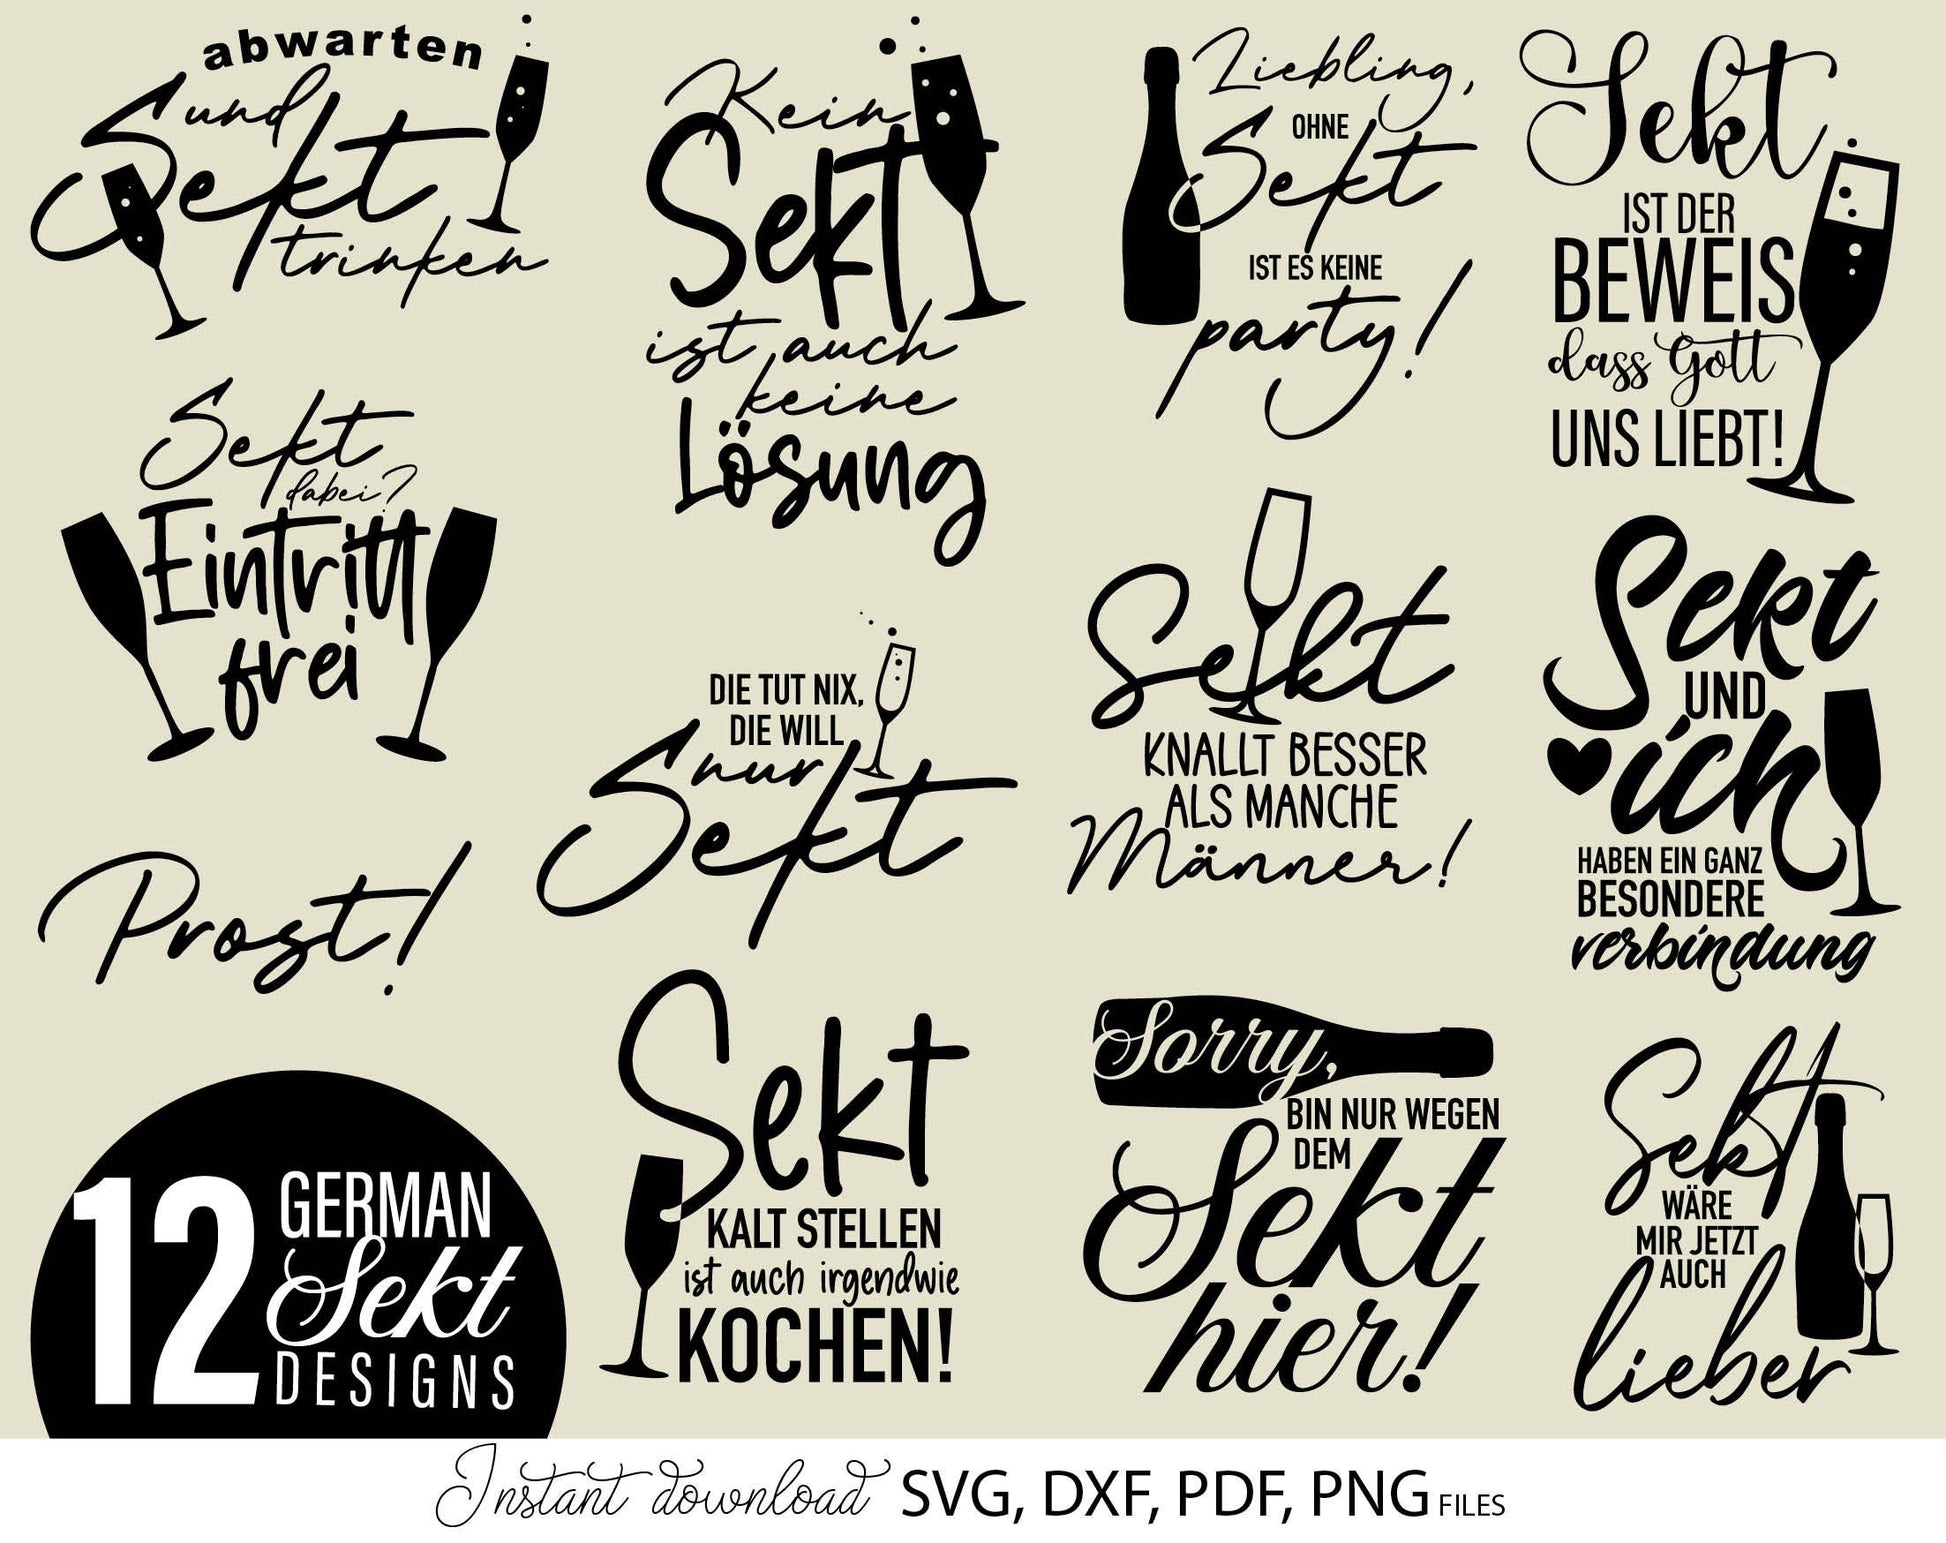 abwarten
und
Sekt
trinken
Kein
Sekt
ist auch
keine
Lösung
Liebling,
OHNE
Sekt
IST ES KEINE
party!
Sekt
IST DER
BEWEIS
dass Gott
UNS LIEBT!
Sekt
dabei?
Eintritt
frei
DIE TUT NIX,
DIE WILL
nur
Sekt
Sekt
KNALLT BESSER
ALS MANCHE
Männer!
Sekt
UND
ich
HABEN EIN GANZ
BESONDERE
verbindung
Prost!
Sekt
KALT STELLEN
ist auch irgendwie
KOCHEN!
Sorry,
BIN NUR WEGEN
DEM
Sekt
hier!
Sekt
WÄRE
MIR JETZT
AUCH
lieber
12
GERMAN
Sekt
DESIGNS
Instant download SVG, DXF, PDF, PNG FILES